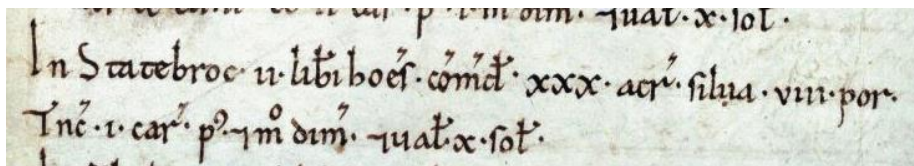 ⁊ual̃·x·sol̃·
In Statebroc· ii· lib̃i hoẽs· cõmd̃· xxx· acr̃· silua· viii· por·
Tnc̃·i· car̃· p᷒·⁊ m̊ dim̃· ⁊ual̃·x·sol̃·